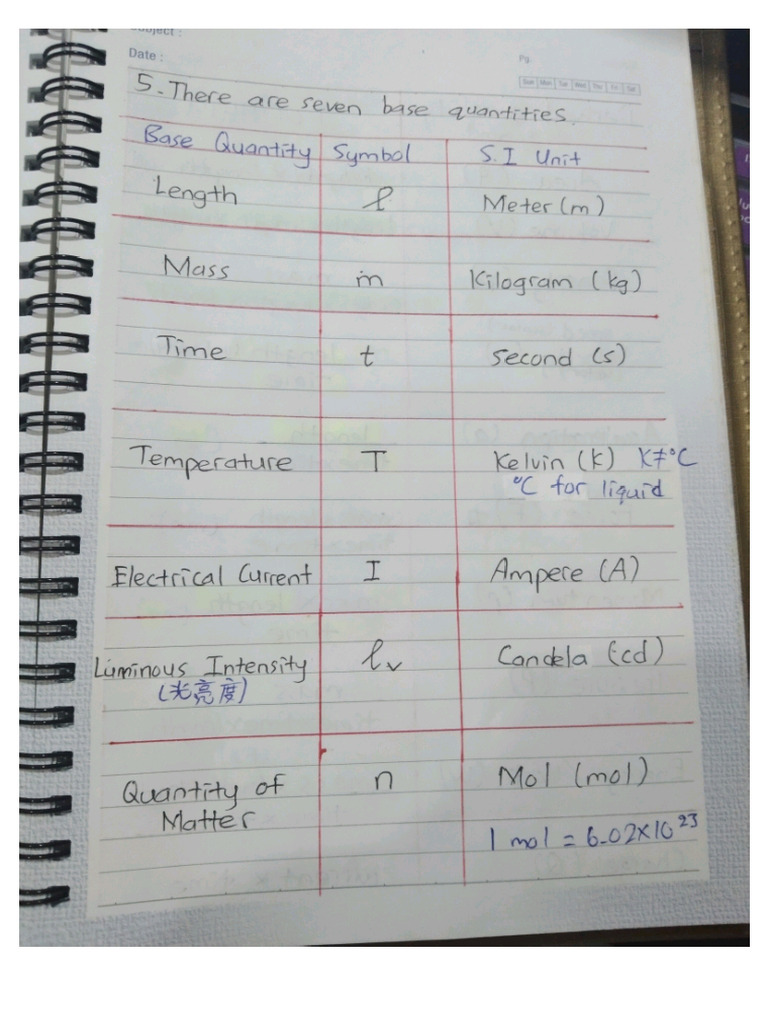 Subject :
Date :
Pg.
Sun Mon Tue Wed Thu Fri Sat
5. There are seven base quantities.
Base Quantity Symbol S.I Unit
Length ℓ Meter (m)
Mass m Kilogram (kg)
Time t second (s)
Temperature T Kelvin (K) K≠°C
°C for liquid
Electrical Current I Ampere (A)
Luminous Intensity ℓv Candela (cd)
(光亮度)
Quantity of n Mol (mol)
Matter
1 mol = 6.02×10²³